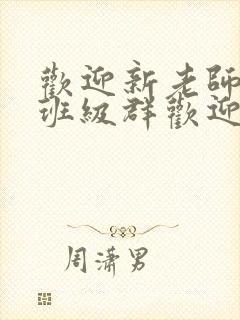 歡迎新老師
班級群歡迎
周瀟男